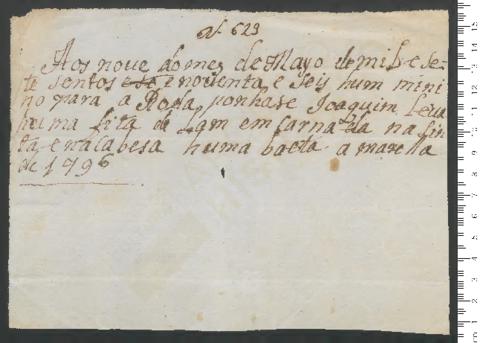 N. 623
Aos nove do mes de Mayo de mil e se-
te sentos e noventa e seis hum mini
no para a Roda, ponhase Joaquim leva
huma fita de Lam emcarnada na sin
ta e na cabesa huma baeta amarella
de 1796